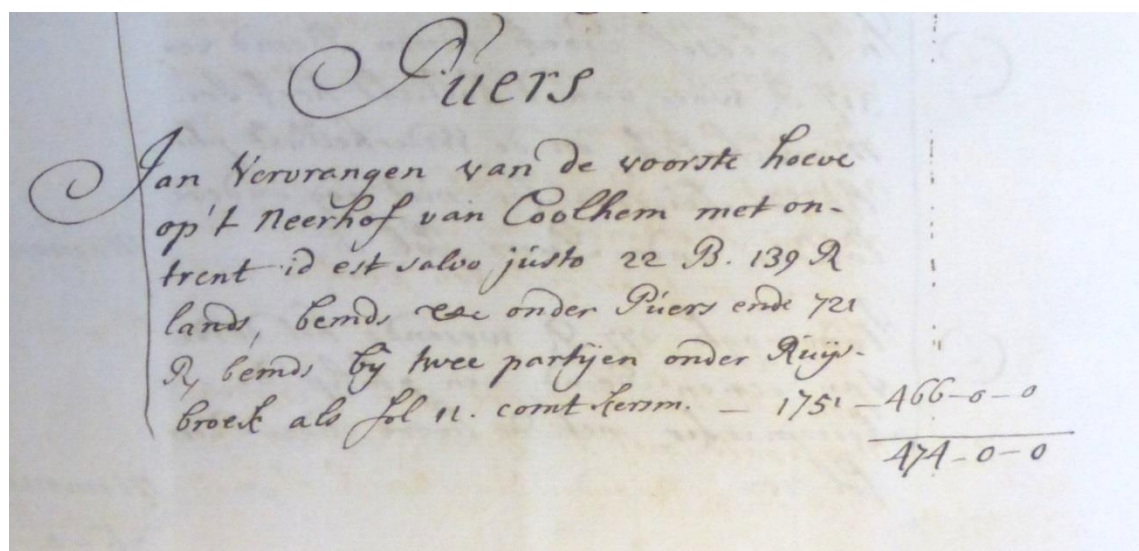 Púers
Jan Vervrangen van de voorste hoeve
op't neerhof van Coolhem met on-
trent id est salvo justo 22 B. 139 R
lands, bemds etc onder Púers ende 721
R, bemds bij twee partijen onder Ruijs-
broek als fol 11. comt kersm. — 1751 — 466-0-0
474-0-0